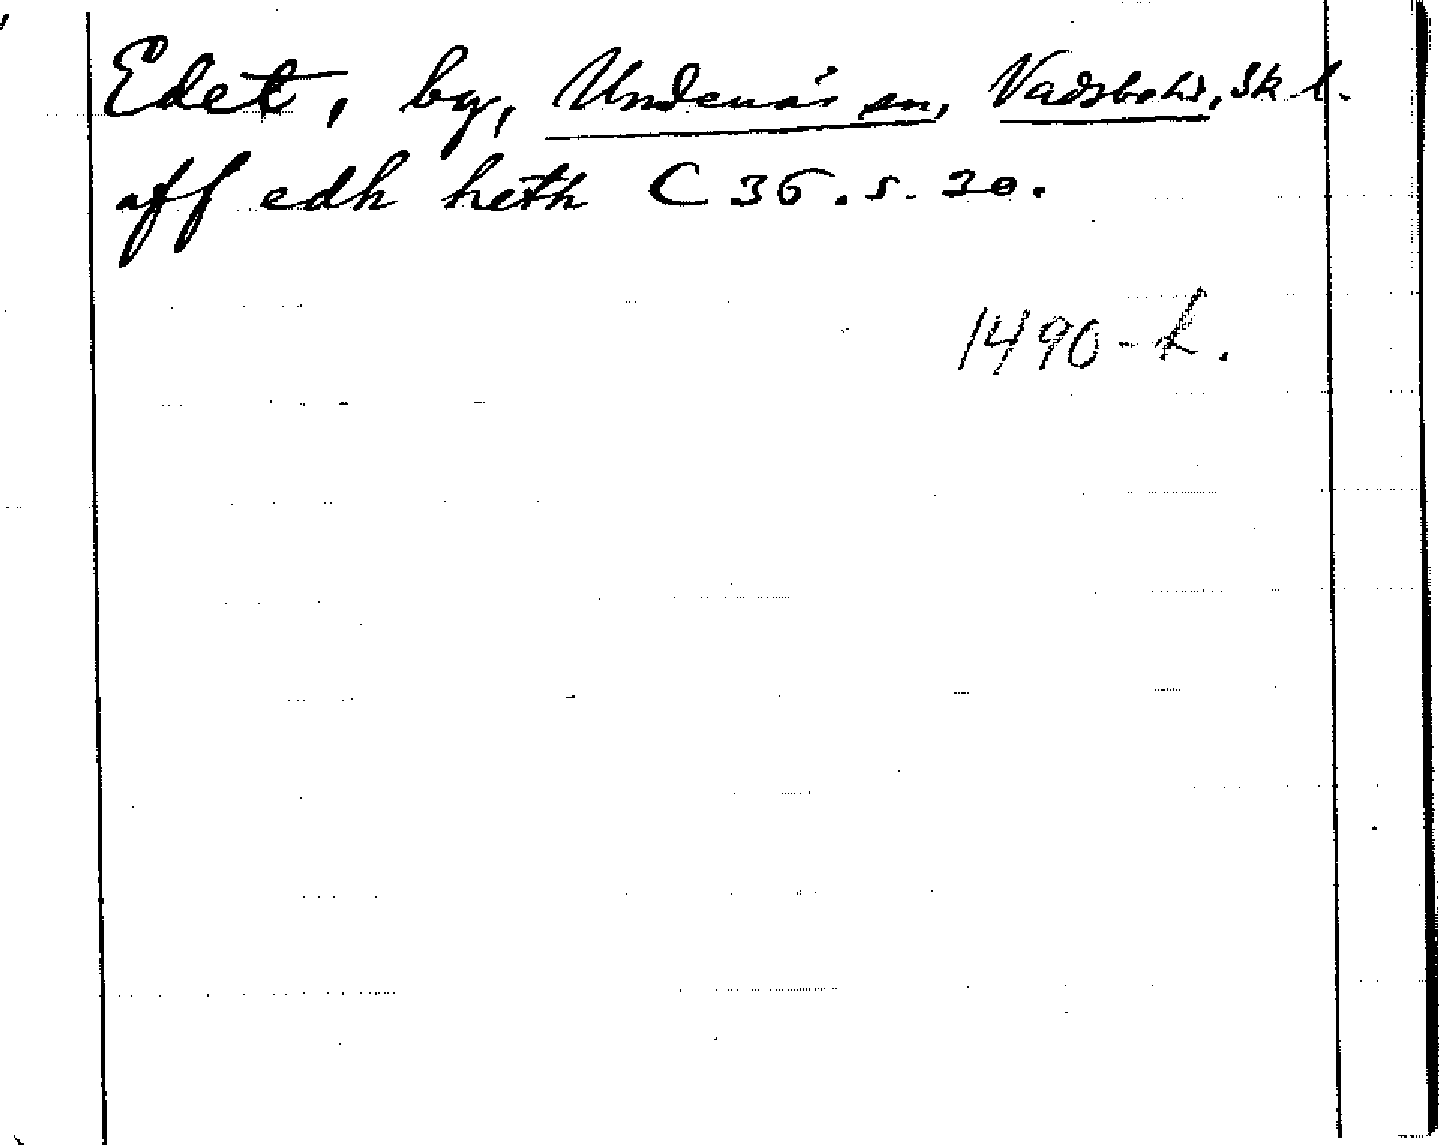 Edet, by, Undenäs sn, Vadsbo hd, Sk l.
aff edh heth C 36. s. 30.
1490-t.